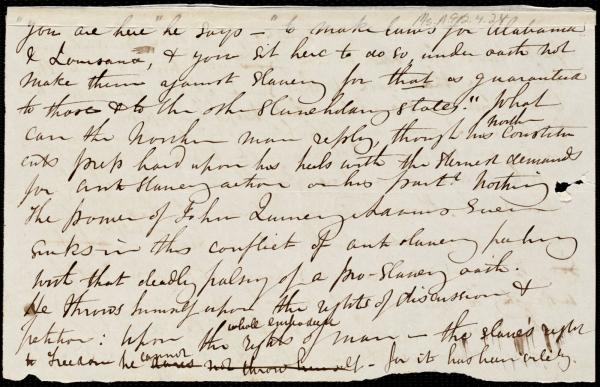 Ms.A.9.2.4.28
you are here" he says – "to make laws for Alabama
& Louisiana, & you sit here to do so, under oath not
make them against Slavery for that is guaranteed
to those & to the other Slaveholding States." What
can the Northern man reply, though his north constitu
ents press hard upon his heels with the sternest demands
for anti slavery action on his part? Nothing
The power of John Quincy Adams even
sinks in this conflict of anti slavery
with that deadly palsy of a pro-Slavery oath.
He throws himself upon the rights of discussion &
petition: upon the whole rights of man – the slave's right
to freedom he cannot dares not throw himself – for it has been